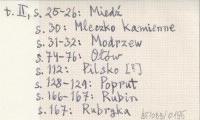 t. II, s. 25-26: Miedź
s. 30: Mleczko Kamienne
s. 31-32: Modrzew
s. 74-76: Ołów
s. 112: Pilsko [?]
s. 128-129: Poprut
s. 166-167: Rubin
s. 167: Rubryka